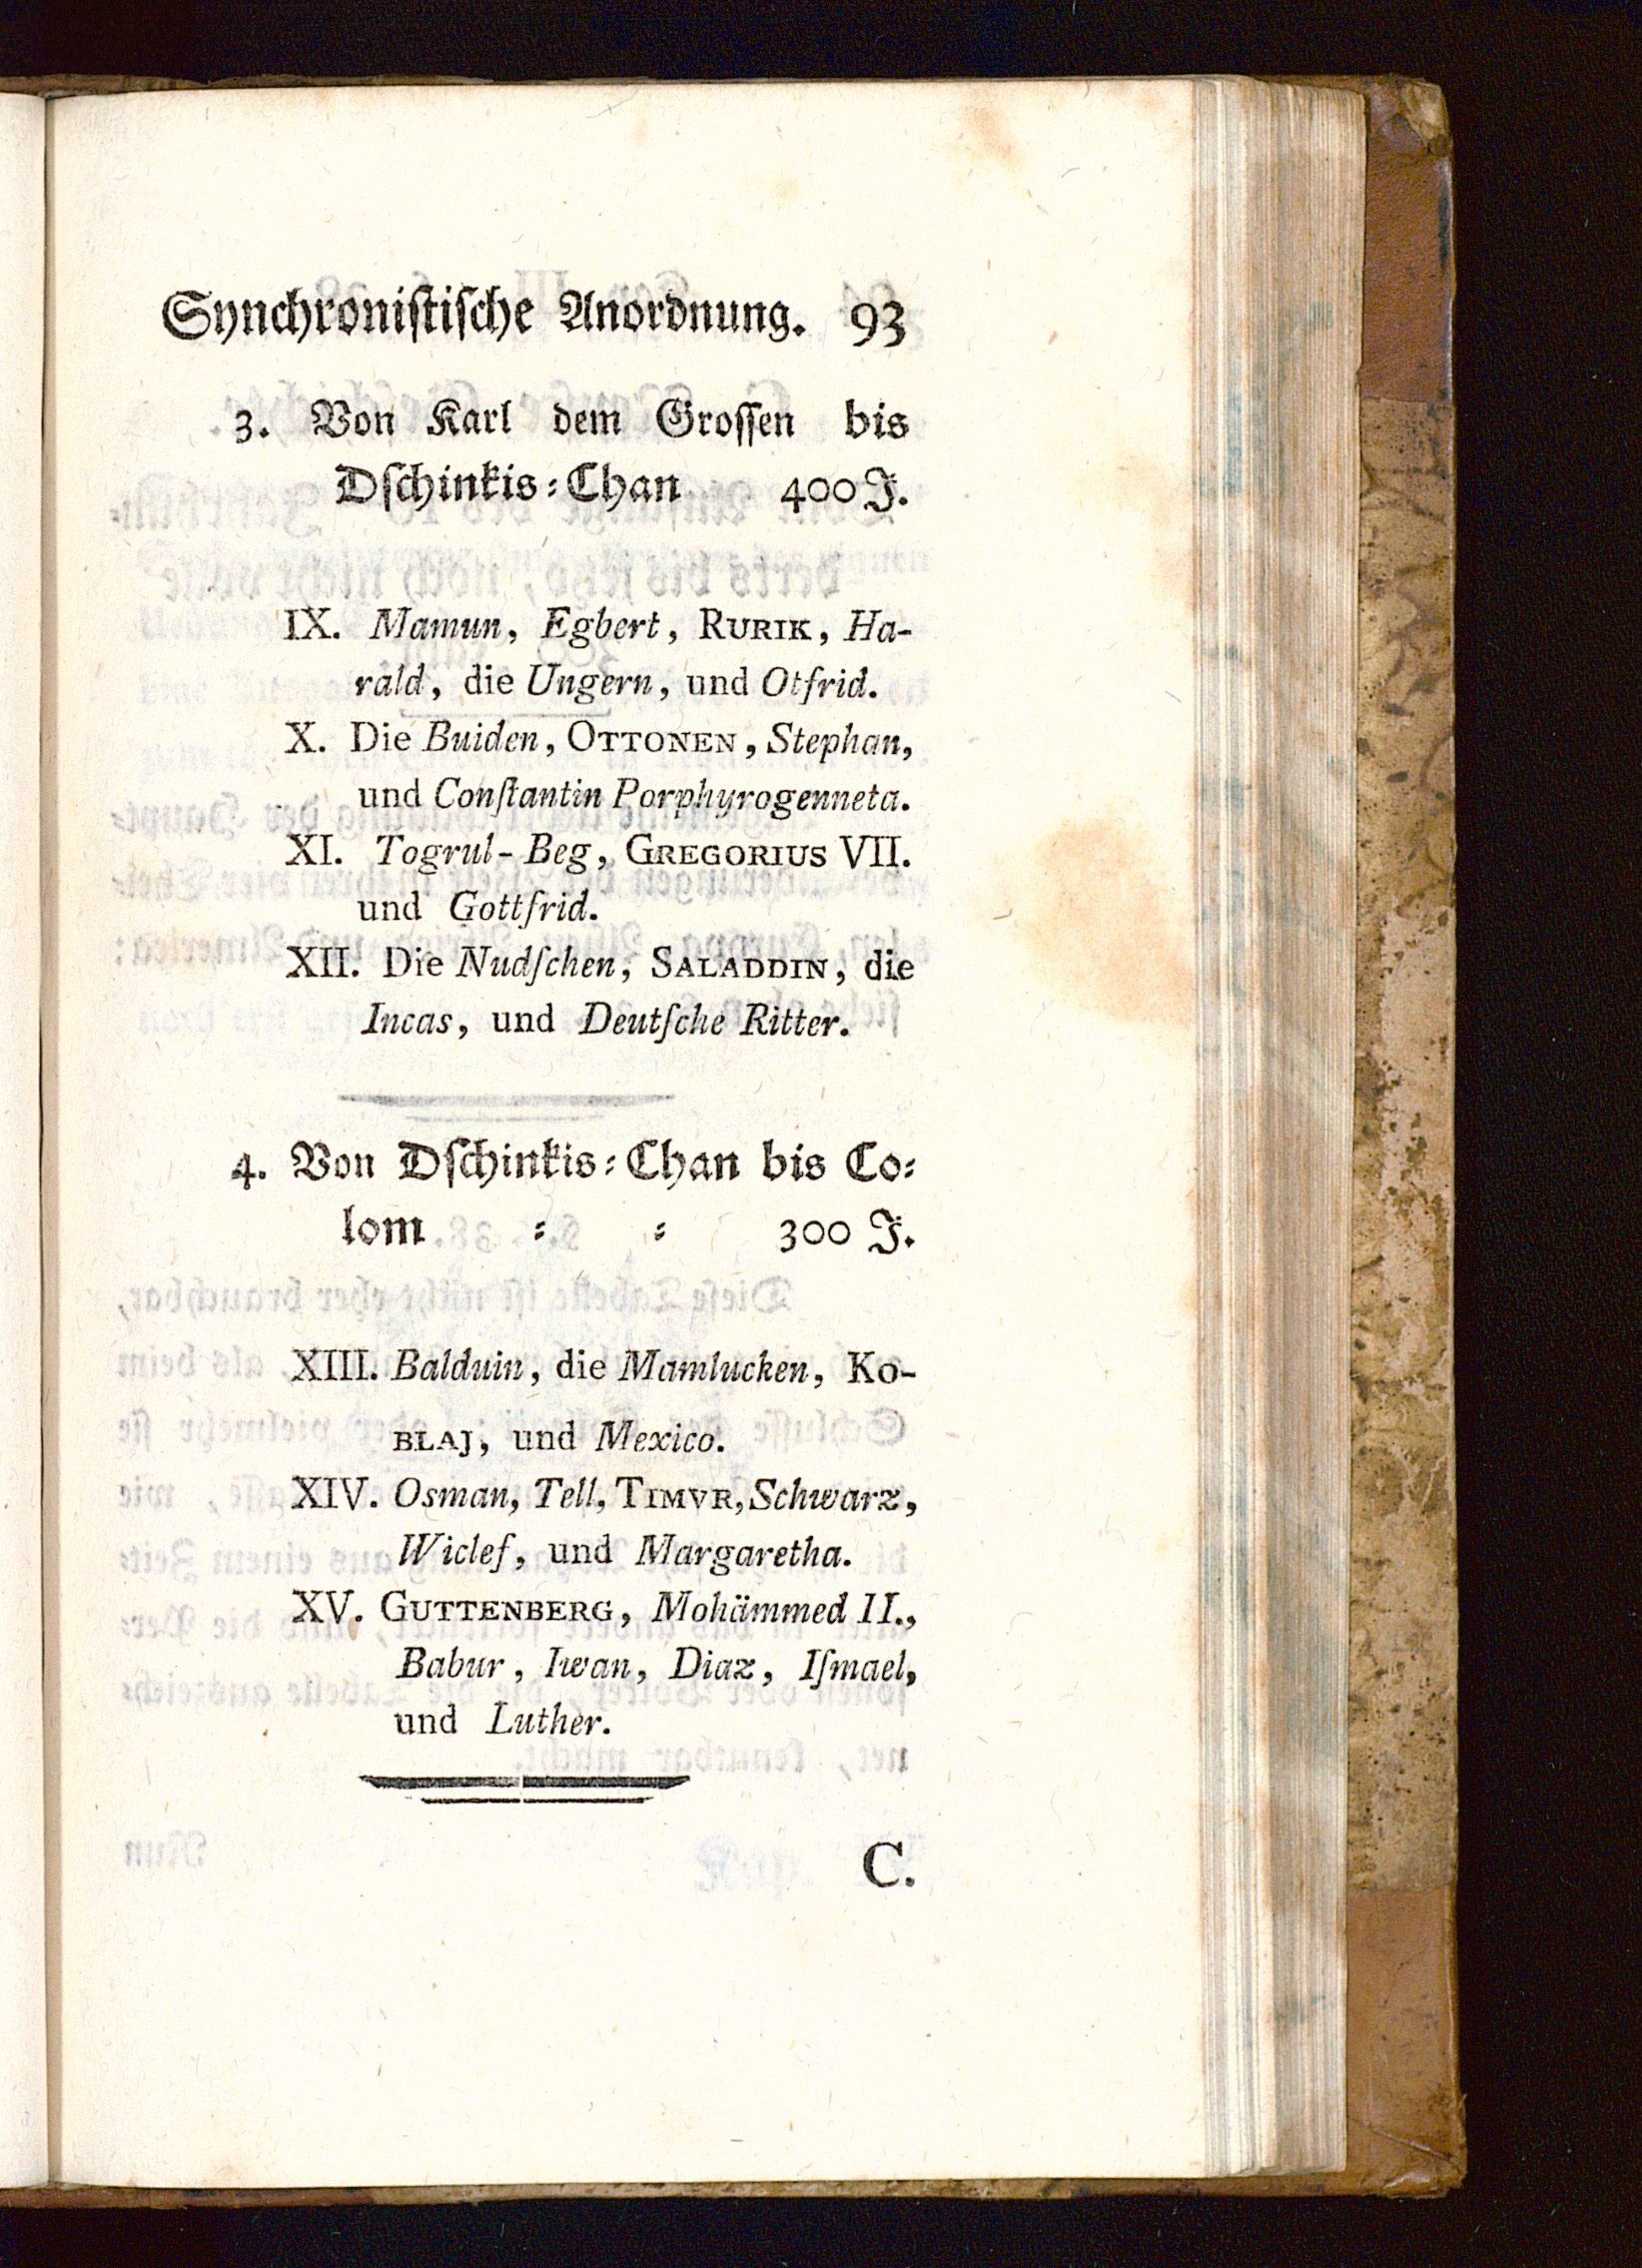 Synchroniſtiſche Anordnung. 93
3. Von Karl dem Groſſen bis
Dſchinkis⸗Chan 400 J.
IX. Mamun, Egbert, RURIK, Ha-
rald, die Ungern, und Otfrid.
X. Die Buiden, OTTONEN, Stephan,
und Conſtantin Porphyrogenneta.
XI. Togrul-Beg, GREGORIUS VII.
und Gottfrid.
XII. Die Nudſchen, SALADDIN, die
Incas, und Deutſche Ritter.
4. Von Dſchinkis⸗Chan bis Co⸗
lom ⸗ ⸗ 300 J.
XIII. Balduin, die Mamlucken, KO-
BLAJ, und Mexico.
XIV. Osman, Tell, TIMVR, Schwarz,
Wiclef, und Margaretha.
XV. GUTTENBERG, Mohämmed II.,
Babur, Iwan, Diaz, Iſmael,
und Luther.
C.